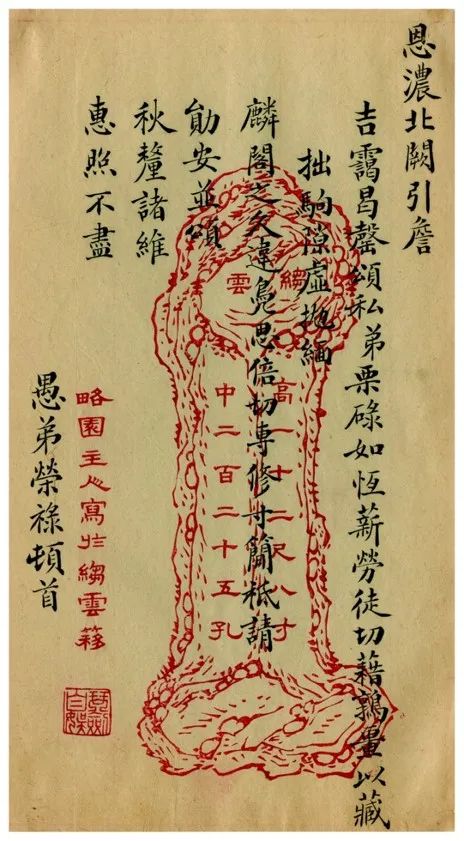 恩濃北闕引詹
吉靄曷罄頌私弟栗碌如恆薪勞徒切藉鶉以藏
拙駒隙虛拋緬
麟閣之久違鳧思倍切專修寸簡祗請
勛安並頌
秋釐諸維
惠照不盡
愚弟榮祿頓首
縐雲
高一十二尺八寸
中二百二十五孔
略園主人寫於縐雲簃